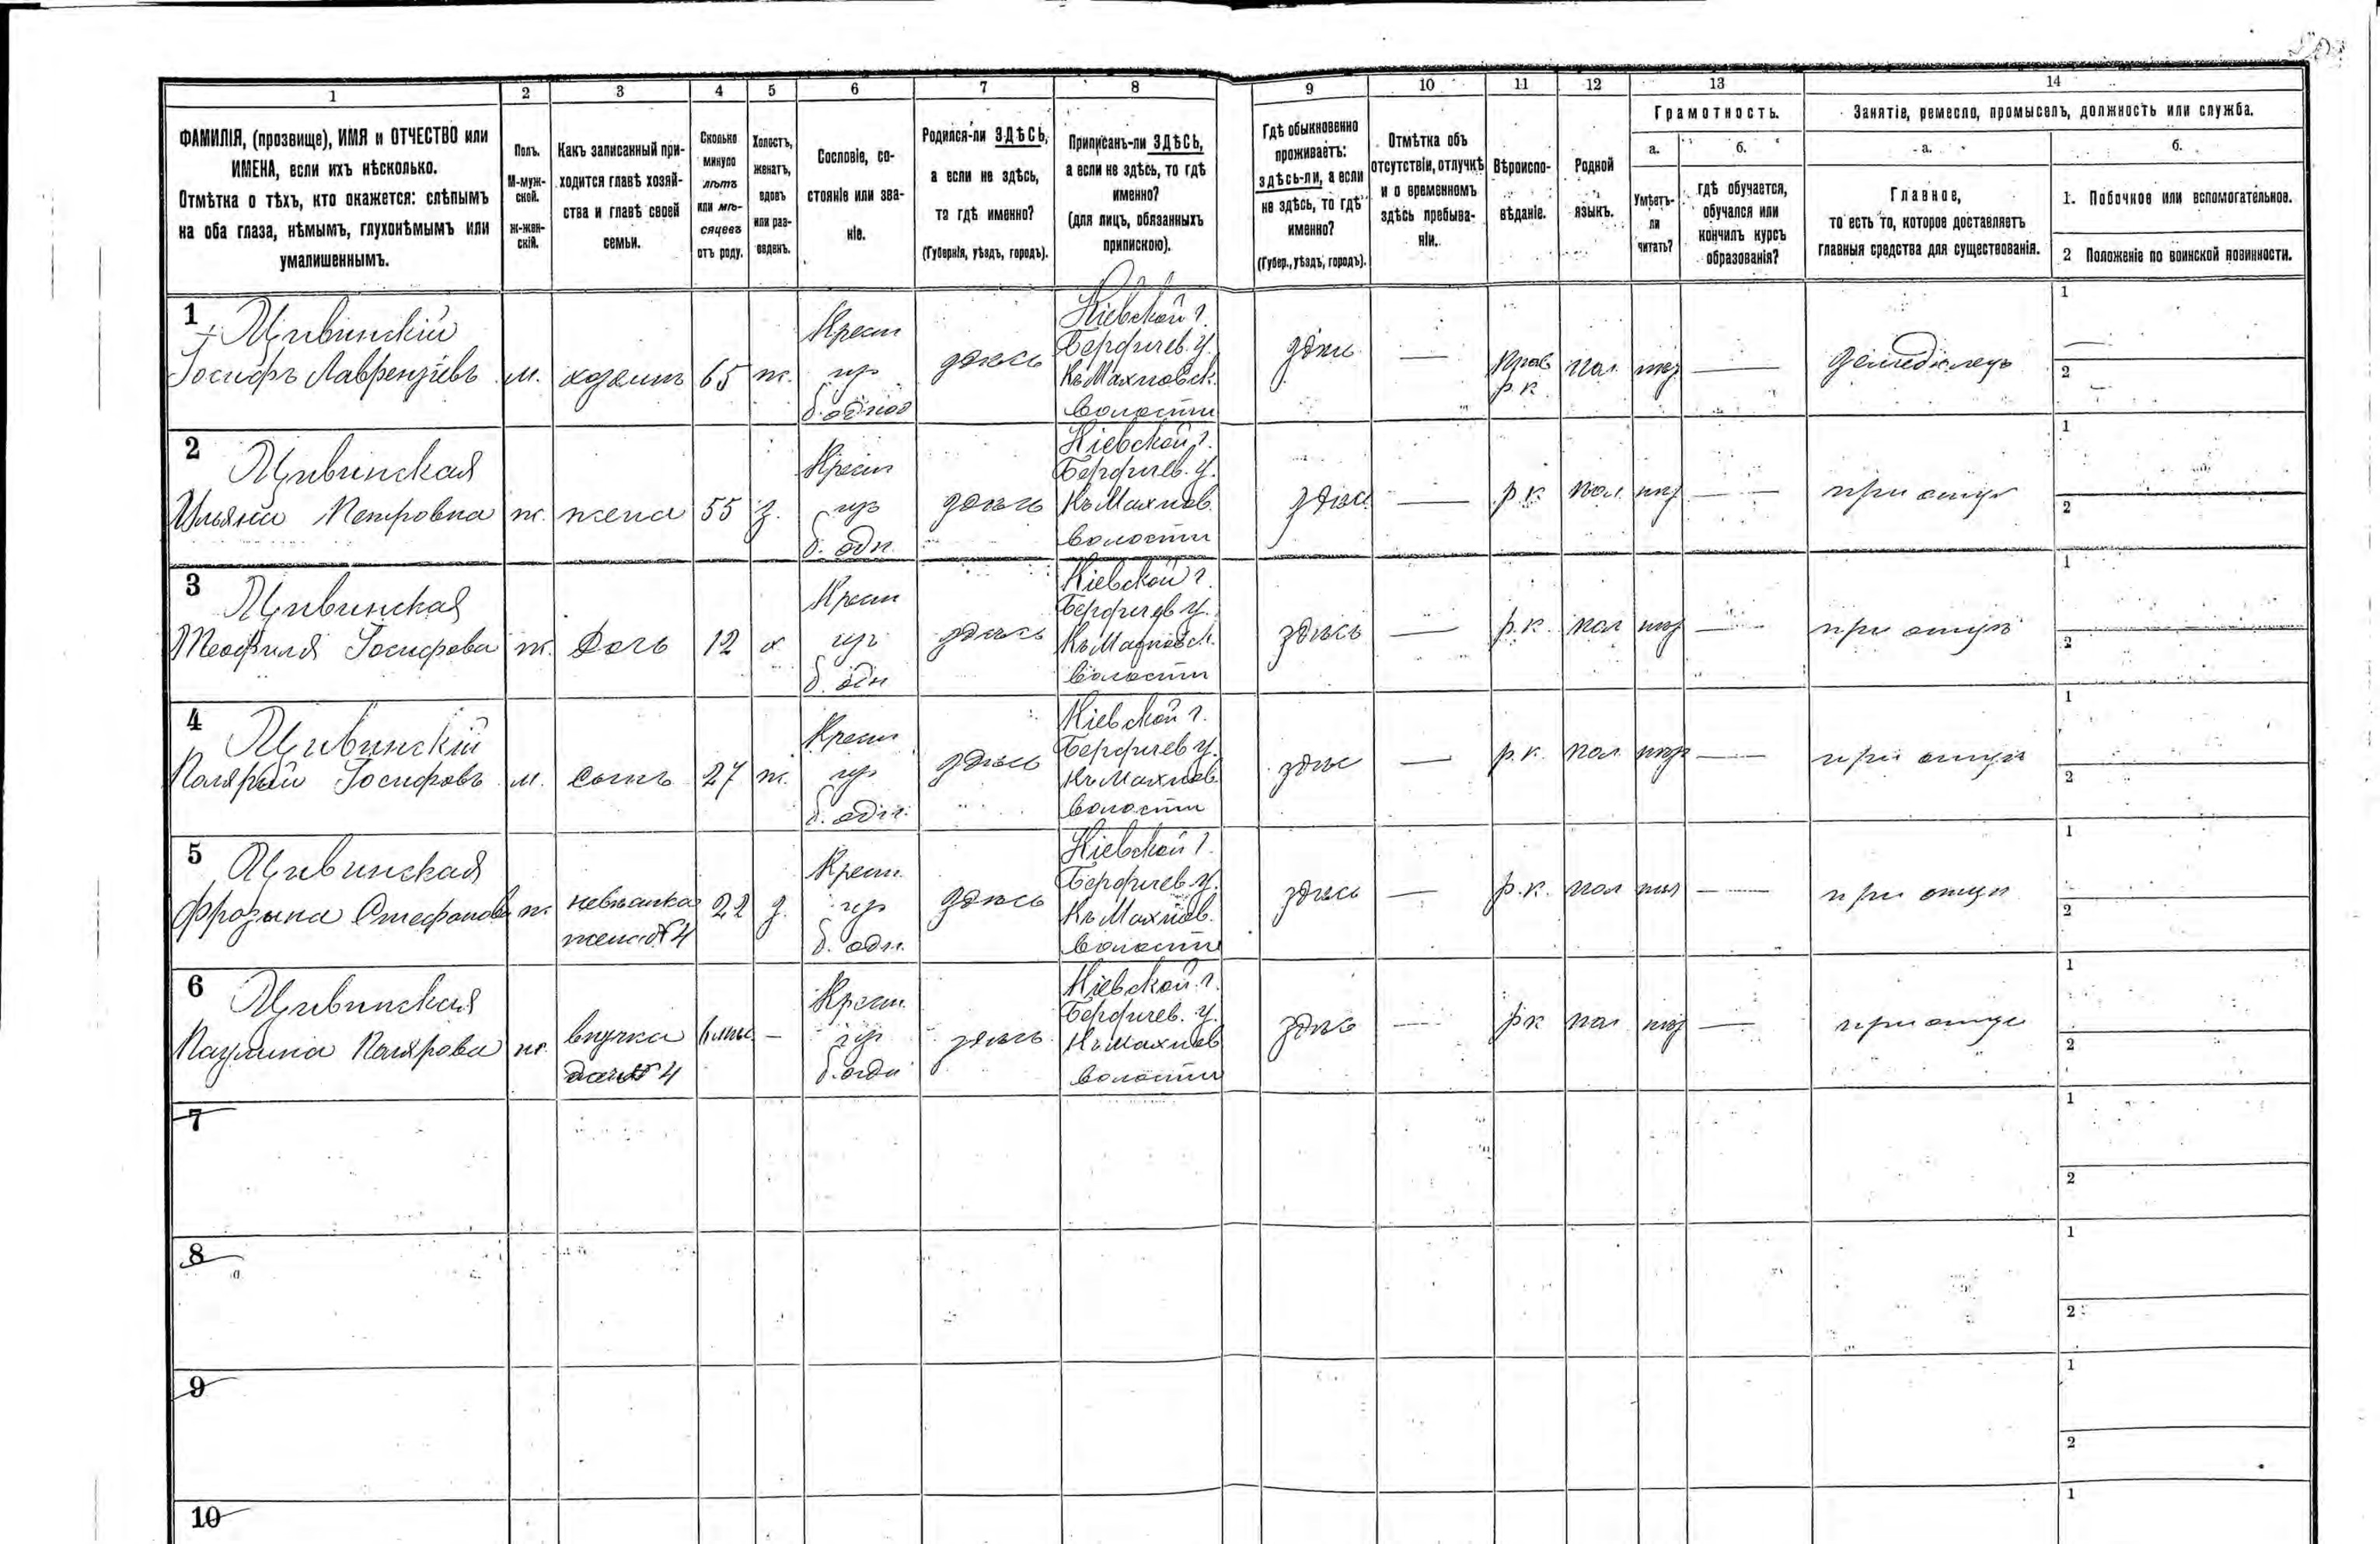 1 2 3 4 5 6 7 8 9 10 11 12 13 14
ФАМИЛІЯ, (прозвище), ИМЯ и ОТЧЕСТВО или
ИМЕНА, если ихъ нѣсколько.
Отмѣтка о тѣхъ, кто окажется: слѣпымъ
на оба глаза, нѣмымъ, глухонѣмымъ или
умалишеннымъ.
Полъ.
М-муж-
ской.
ж-жен-
скій.
Какъ записанный при-
ходится главѣ хозяй-
ства и главѣ своей
семьи.
Сколько
минуло
лѣтъ
или мѣ-
сяцевъ
отъ роду.
Холостъ,
женатъ,
вдовъ
или раз-
веденъ.
Сословіе, со-
стояніе или зва-
ніе.
Родился-ли ЗДѢСЬ,
а если не здѣсь,
то гдѣ именно?
(Губернія, уѣздъ, городъ).
Приписанъ-ли ЗДѢСЬ,
а если не здѣсь, то гдѣ
именно?
(для лицъ, обязанныхъ
припискою).
Гдѣ обыкновенно
проживаетъ:
здѣсь-ли, а если
не здѣсь, то гдѣ
именно?
(Губер., уѣздъ, городъ).
Отмѣтка объ
отсутствіи, отлучкѣ
и о временномъ
здѣсь пребыва-
ніи.
Вѣроиспо-
вѣданіе.
Родной
языкъ.
Грамотность.
а.
Умѣетъ-
ли
читать?
б.
гдѣ обучается,
обучался или
кончилъ курсъ
образованія?
Занятіе, ремесло, промыселъ, должность или служба.
а.
Главное,
то есть то, которое доставляетъ
главныя средства для существованія.
б.
1. Побочное или вспомогательное.
2 Положеніе по воинской повинности.
1
Цивинскій
Іосифъ Лаврентіевъ
м. 65 ж.
Крест
б. однод
здѣсь
Кіевской г.
Бердичев. у.
Къ Махновск.
волости
здѣсь —
р. к. пол. —
земледѣлецъ
1
2
2
Цивинская
Петровна
ж. жена 55 з.
Крест
б. одн.
здѣсь
Кіевской г.
Бердичев. у.
Къ Махнов.
волости
здѣсь — р. к. пол. —
при отцѣ
1
2
3
Цивинская
Теофиля Іосифова
ж. дочь 12 х
Крест
б. одн
здѣсь
Кіевской г.
Бердичев у.
Къ Махновск.
волости
здѣсь — р. к. пол —
при отцѣ
1
2
4
Цивинскій
Іосифовъ
м. сынъ 27 ж.
Крест
б. одн.
здѣсь
Кіевской г.
Бердичев у.
Къ Махнов
волости
здѣсь — р. к. пол. —
при отцѣ
1
2
5
Цивинская
Фрозына Стефанова
ж. невѣстка 22 з.
жена № 4
Крест.
б. одн.
здѣсь
Кіевской г.
Бердичев у.
Къ Махнов.
волости
здѣсь — р. к. пол —
при отцѣ
1
2
6
Цивинская
Паулина
ж. внучка —
дочь № 4
Крест.
здѣсь
Кіевской г.
Бердичев. у.
Къ Махнов
волости
здѣсь — рк пол —
при отцѣ
1
2
7
1
2
8
1
2
9
1
2
10
1